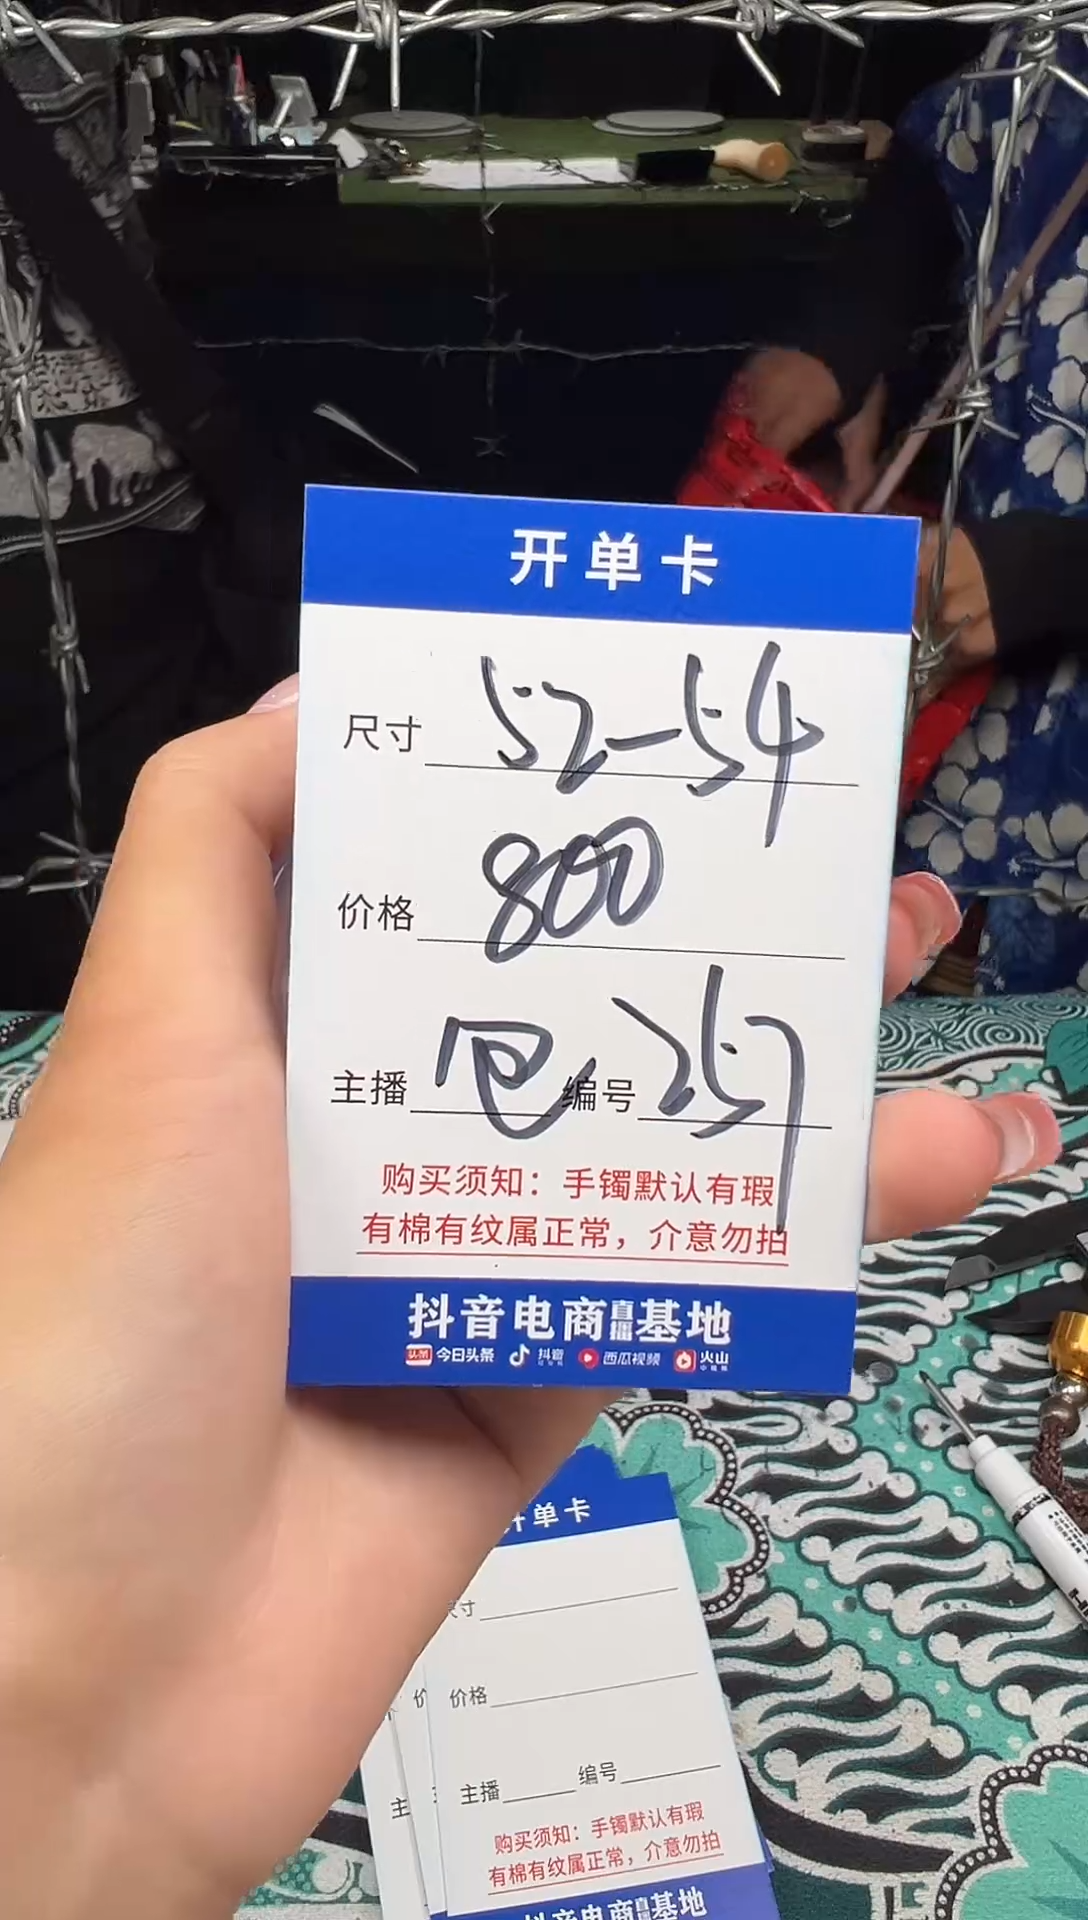 开单卡
尺寸 52-54
价格 800
主播 巴 编号 257
购买须知：手镯默认有瑕
有棉有纹属正常，介意勿拍
抖音电商直播基地
头条 今日头条 抖音 西瓜视频 火山
开单卡
尺寸
价格
主播 编号
购买须知：手镯默认有瑕
有棉有纹属正常，介意勿拍
抖音电商直播基地
价
主